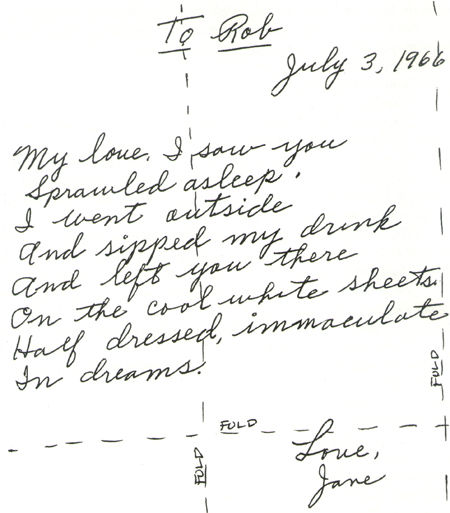 To Rob
July 3, 1966
My love, I saw you
Sprawled asleep.
I went outside
And sipped my drink
And left you there
On the cool white sheets
Half dressed, immaculate
In dreams.
FOLD
FOLD
FOLD
Love,
Jane